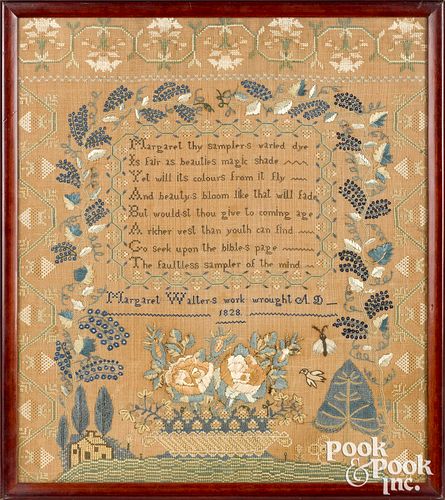 Margaret thy samplers varied dye
Is fair as beauties magic shade
Yet will its colours from it fly
And beauty's bloom like that will fade
But would'st thou give to coming age
A richer vest than youth can find
Go seek upon the bible's page
The faultless sampler of the mind
Margaret Walter's work wrought A D
1828
POOK
& POOK
Inc.